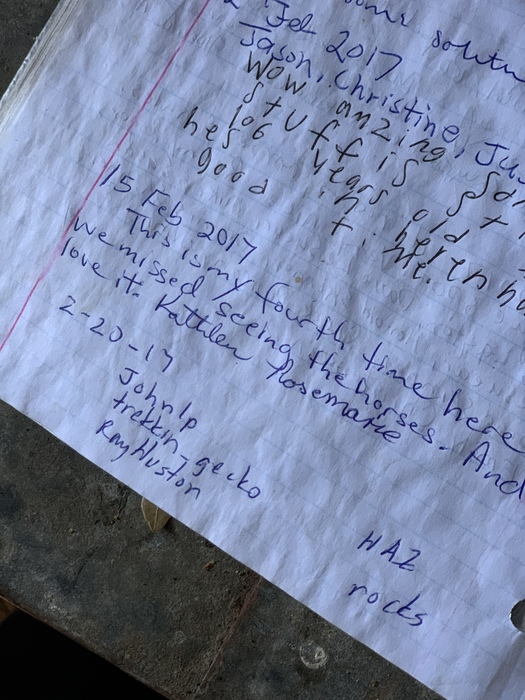 some
Feb 2017
Jason, Christine, Ju
Wow amzing
stuff is
106 years old
hes in
good
15 Feb 2017
This is my fourth time here
We missed seeing the horses. And
love it. Rosemarie
2-20-17
John Ip
trekkin_gecko
Ray Huston
HAZ
rocks